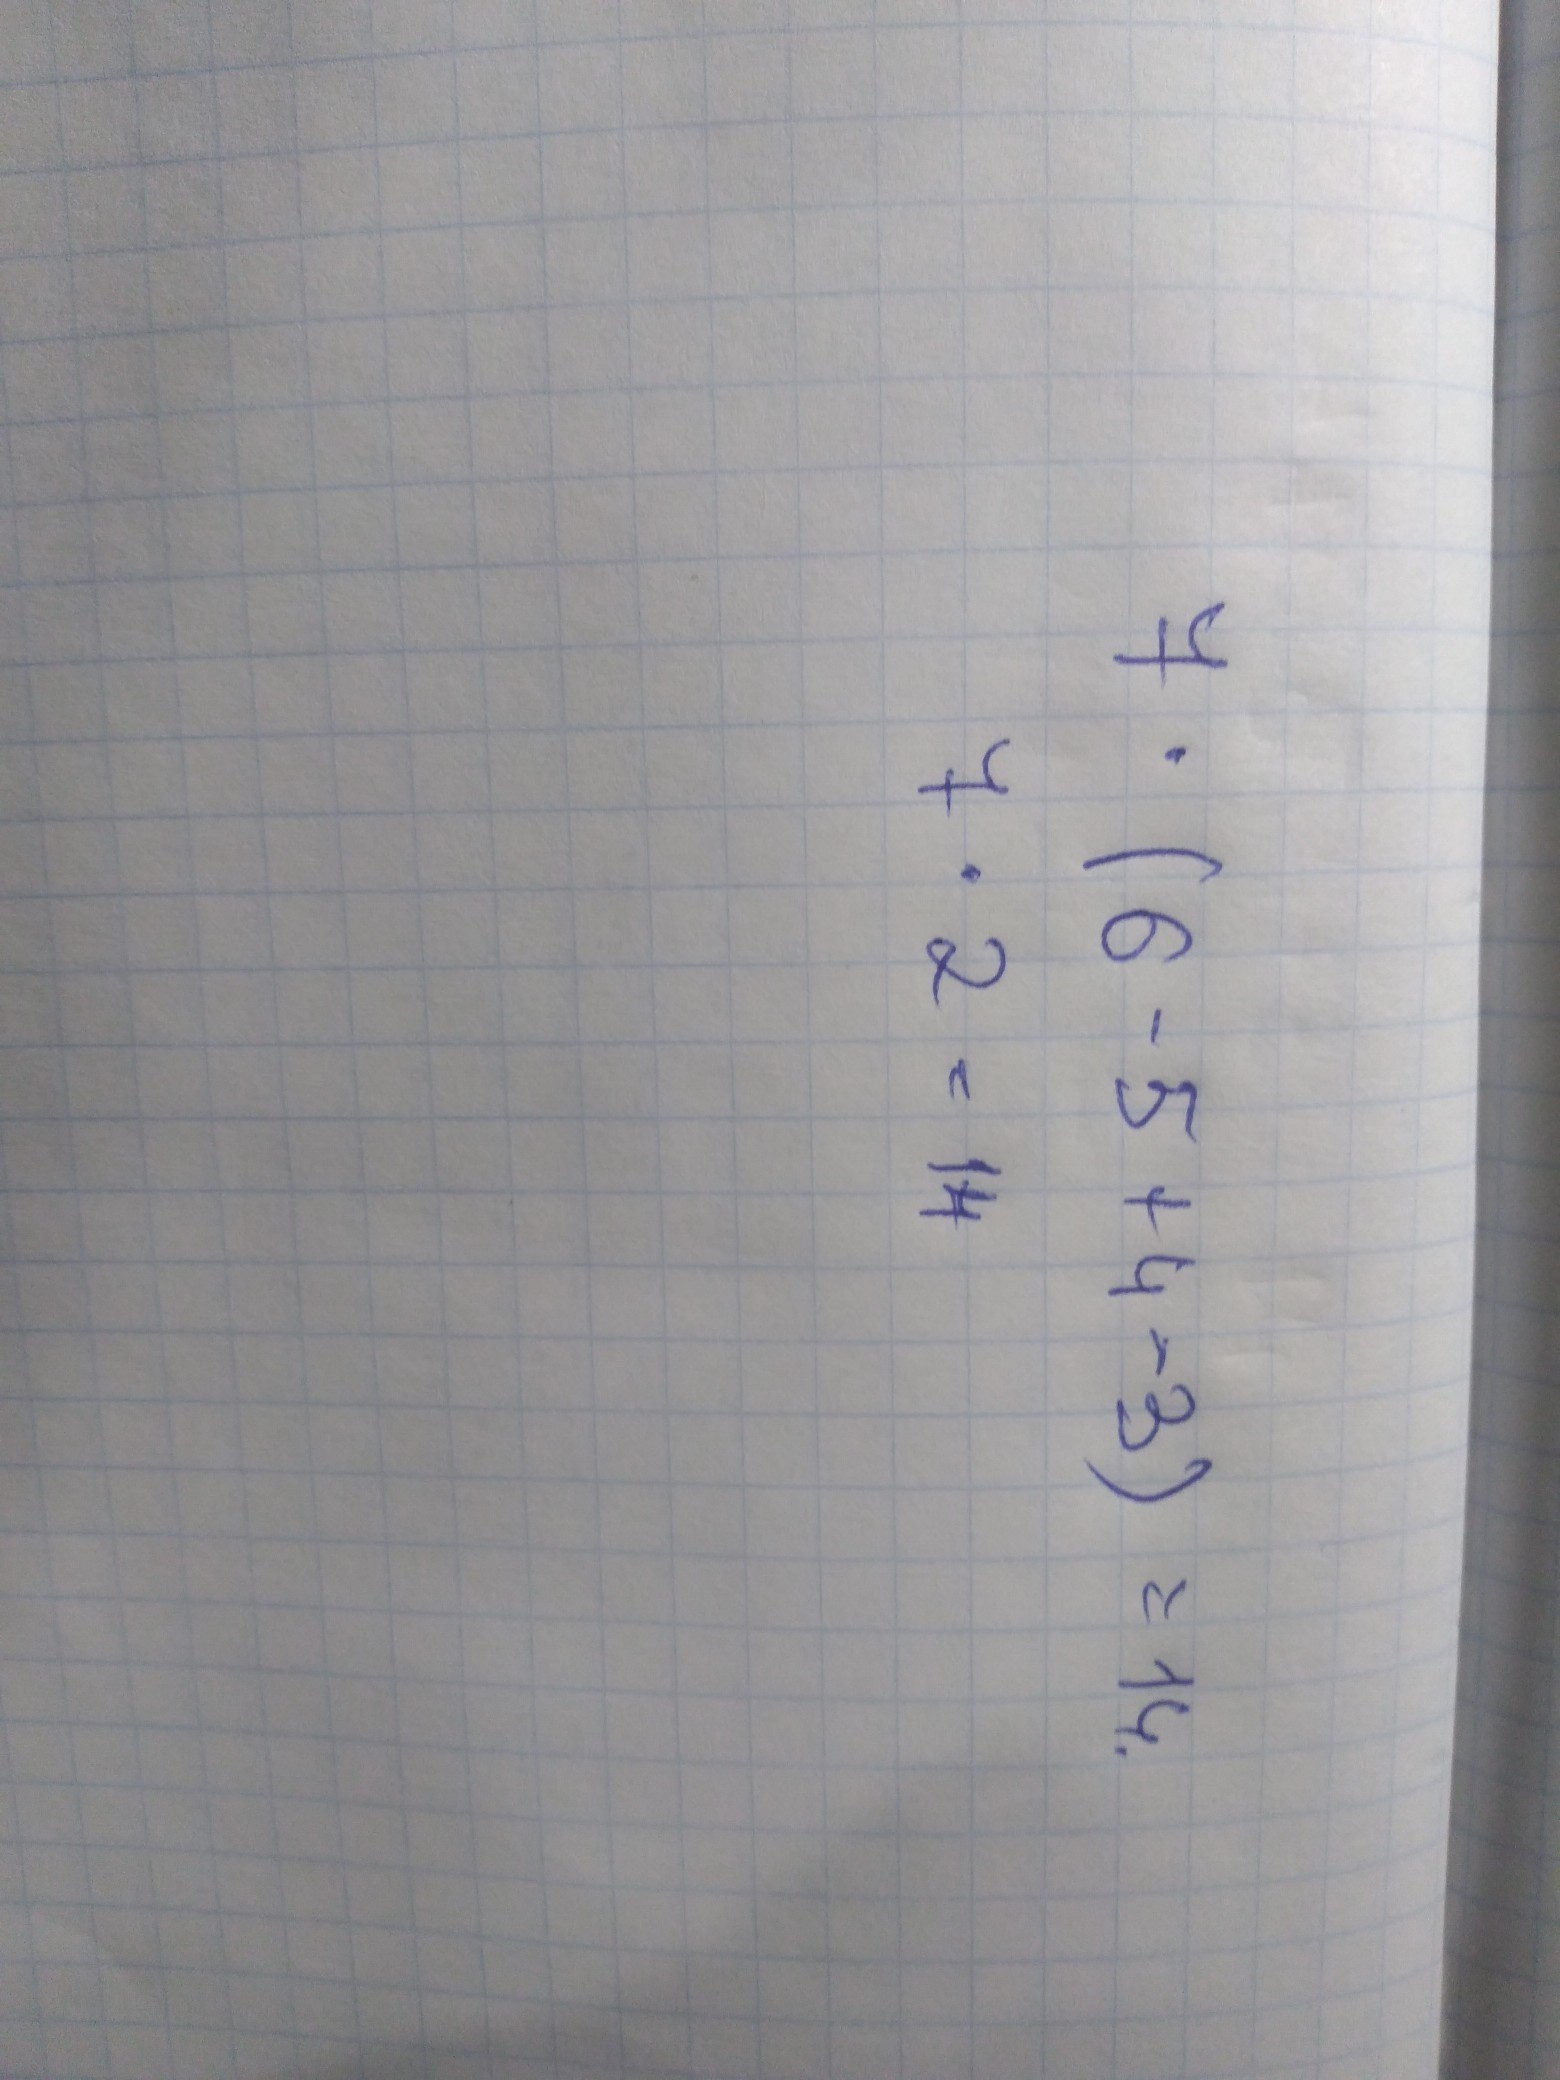 7 · (6 - 5 + 4 - 3) = 14.
7 · 2 = 14